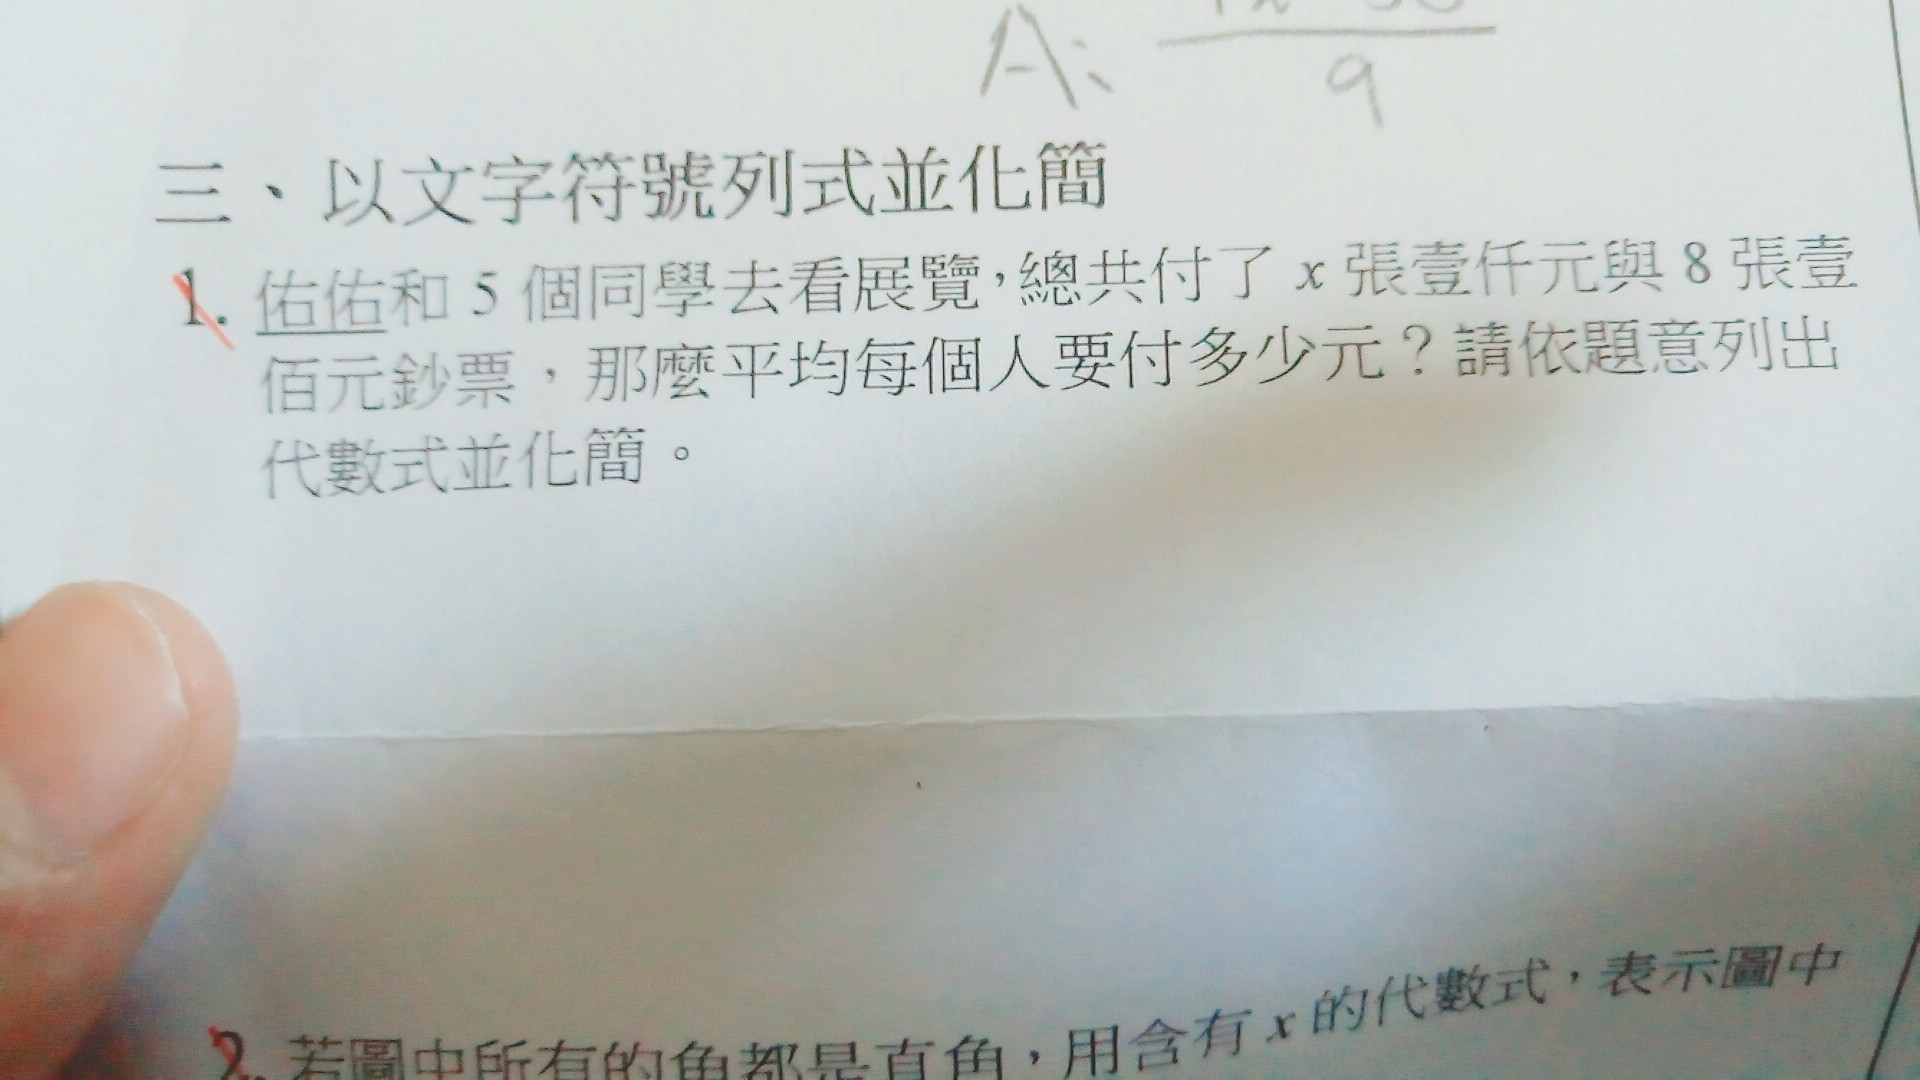 A: 9
三、以文字符號列式並化簡
1. 佑佑和 5 個同學去看展覽,總共付了 x 張壹仟元與 8 張壹
佰元鈔票,那麼平均每個人要付多少元?請依題意列出
代數式並化簡。
2. 若圖中所有的角都是直角,用含有 x 的代數式,表示圖中